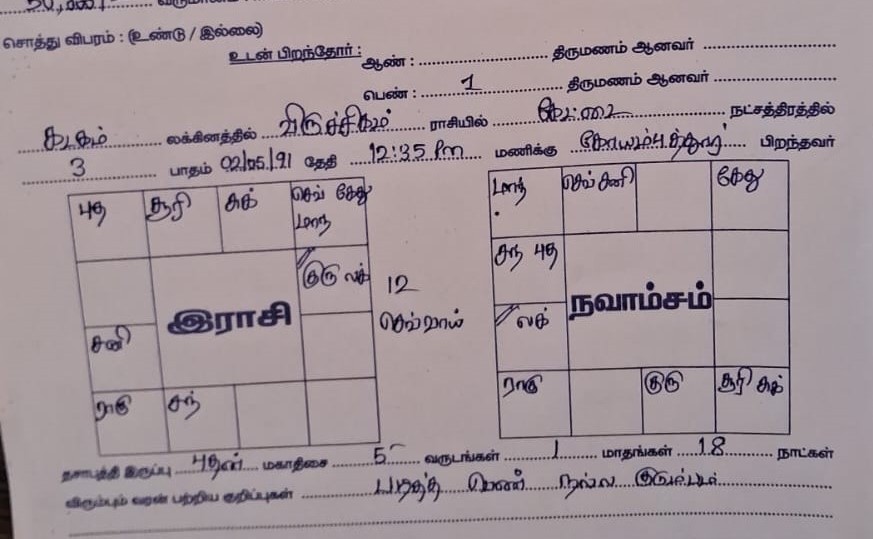 50,000/-
சொத்து விபரம் : (உண்டு / இல்லை)
உடன் பிறந்தோர் : ஆண் : திருமணம் ஆனவர்
பெண் : 1 திருமணம் ஆனவர்
கடகம் லக்கினத்தில் விருச்சிகம் ராசியில் கேட்டை நட்சத்திரத்தில்
3 பாதம் 02/05/91 தேதி 12:35 Pm மணிக்கு கோயம்புத்தூர் பிறந்தவர்
புத சூரி சுக் செவ் கேது மாந்
குரு லக்
இராசி
சனி
ராகு சந்
12
செவ்வாய்
மாந் செவ் சனி கேது
சந் புத
நவாம்சம்
லக்
ராகு குரு சூரி சுக்
தசாபுத்தி இருப்பு புதன் மகாதிசை 5 வருடங்கள் 1 மாதங்கள் 18 நாட்கள்
விரும்பும் வரன் பற்றிய குறிப்புகள் படித்த பெண் நல்ல குடும்பம்